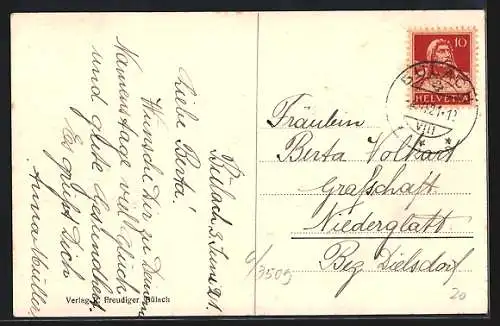 Bülach 3. Juni 21.
Liebe Berta!
Wünsche Dir zu Deinem
Namenstage viel Glück
und gute Gesundheit.
Es grüsst Dich
Anna Müller
Verlag Freudiger Bülach
10
HELVETIA
BÜLACH
21-12
VIII
Fräulein
Berta Volkart
Grafschaft
Niederglatt
Bez. Dielsdorf
20